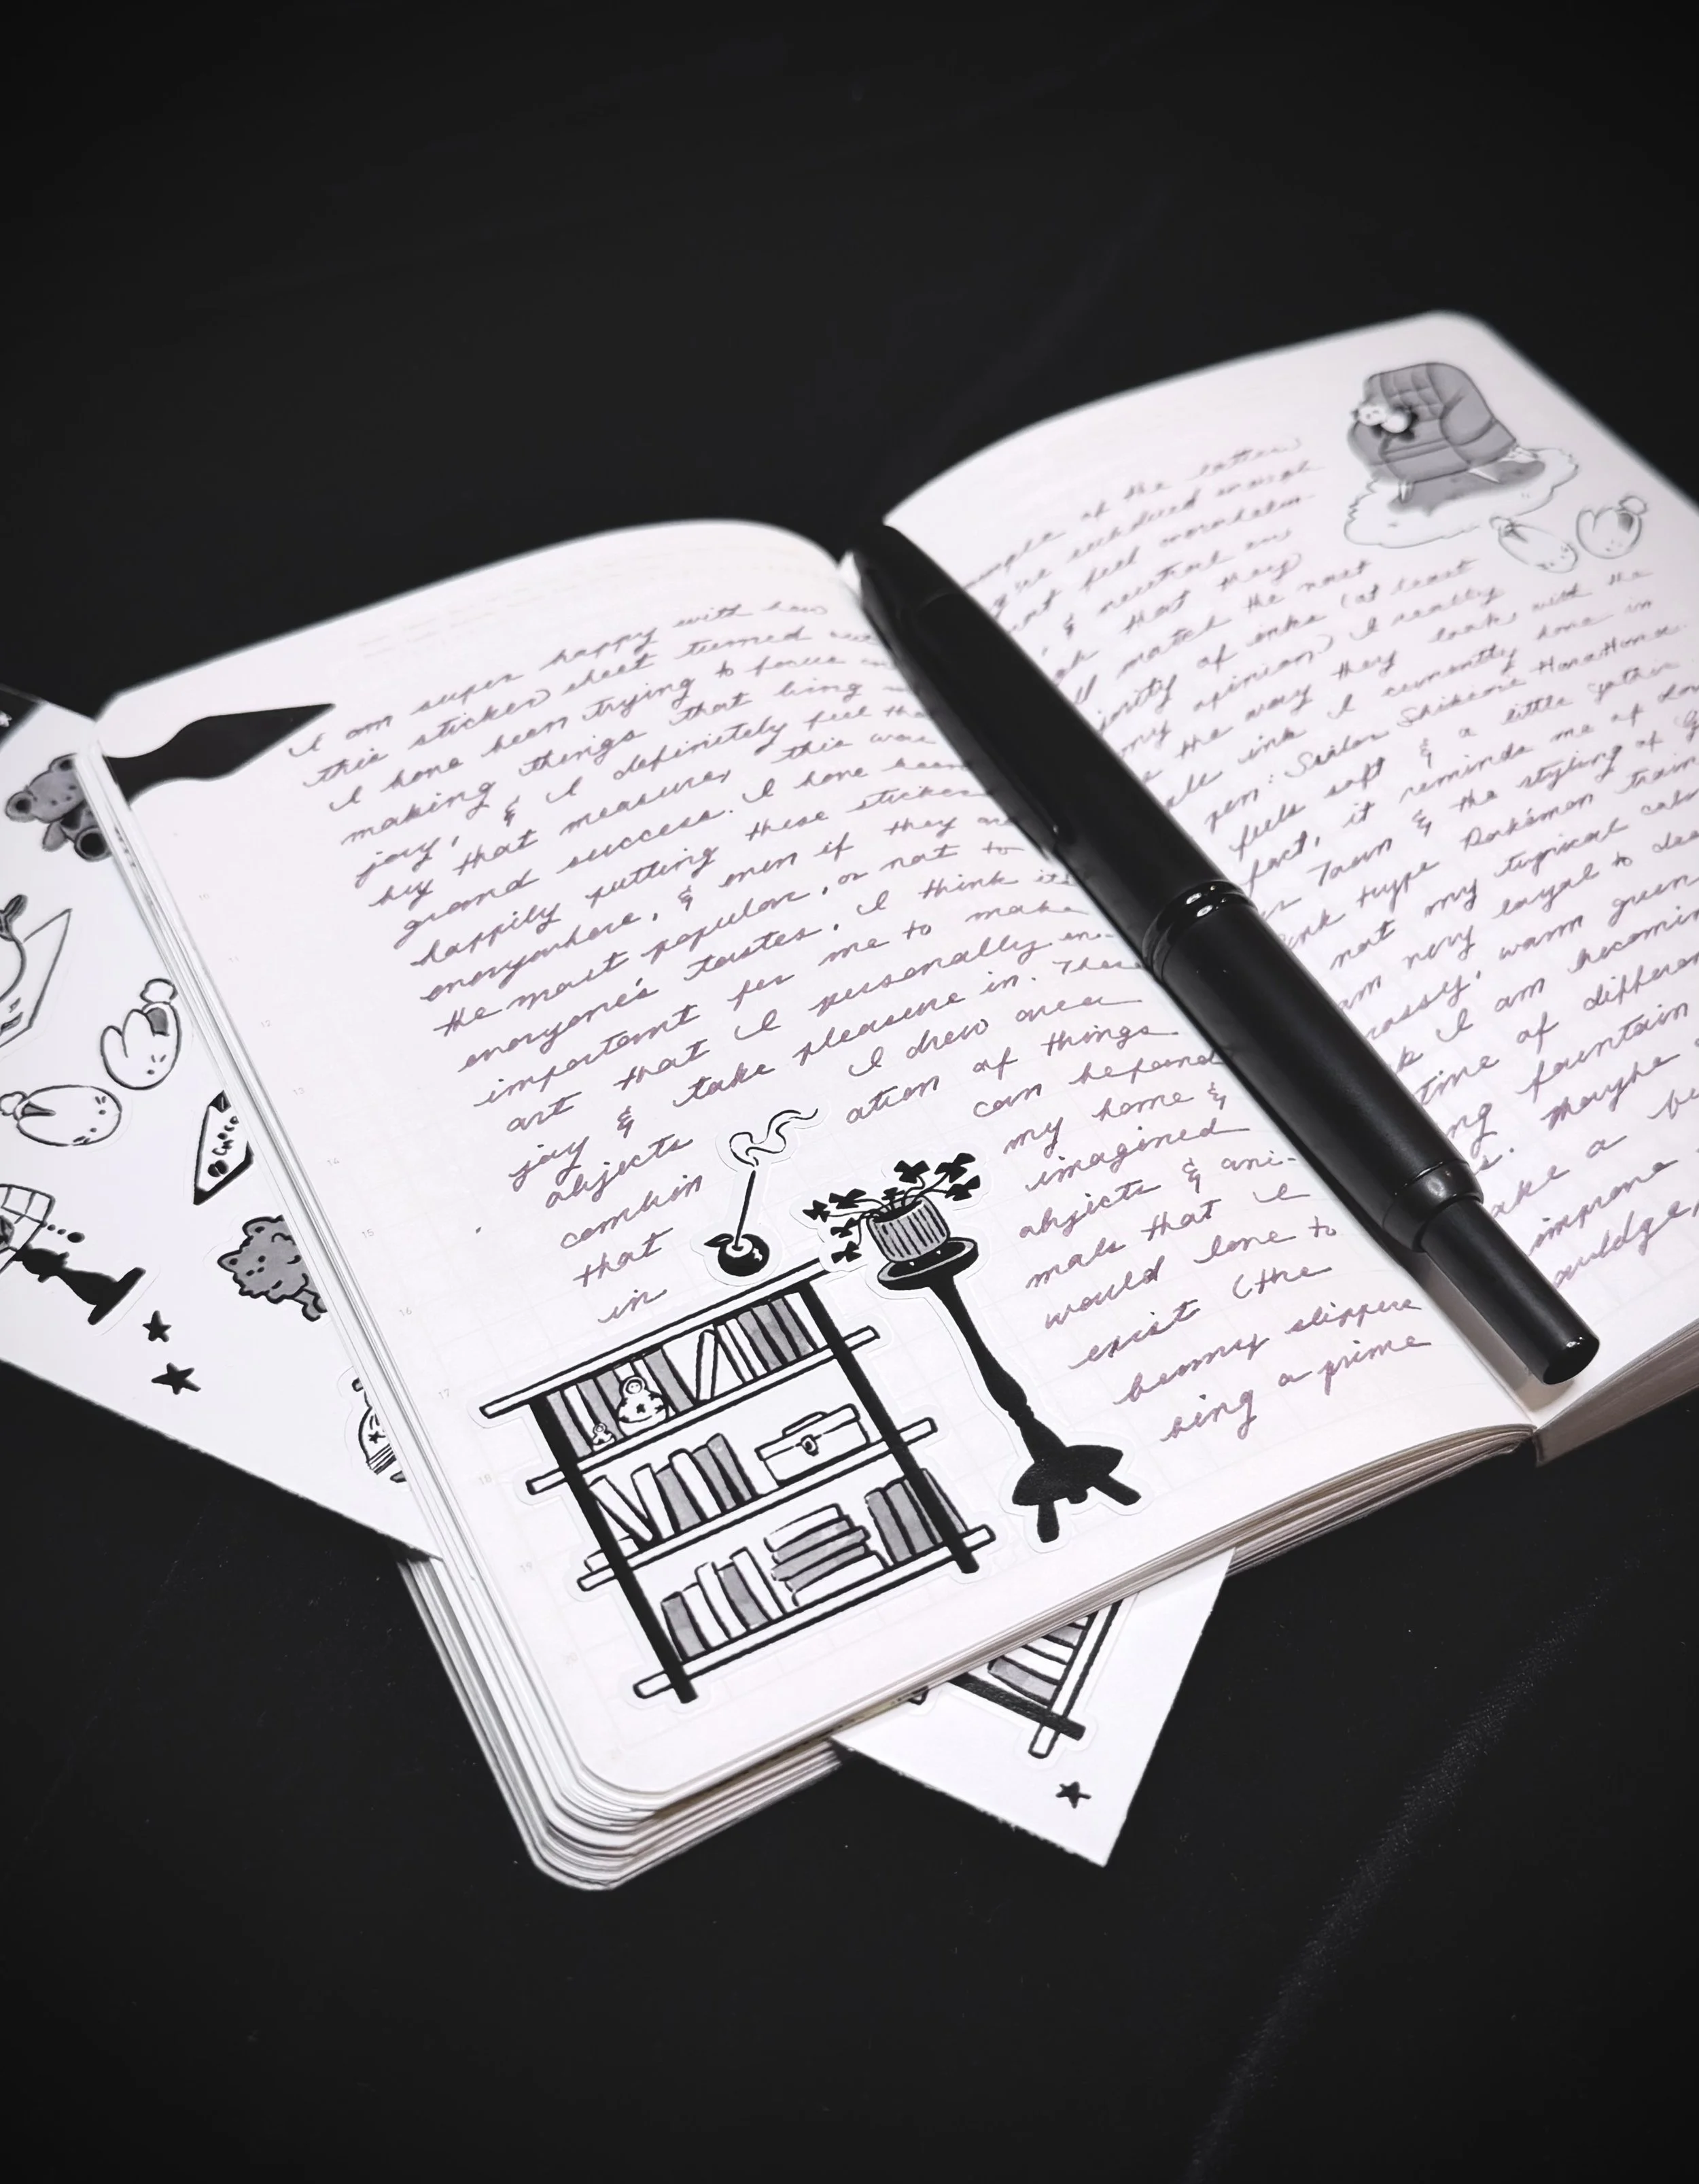 I am super happy with how
this sticker sheet turned out
I have been trying to focus on
making things that bring
joy, & I definitely feel that
by that measure, this was
grand success. I have been
happily putting these stickers
everywhere, & even if they are
the most popular, or not to
everyone's tastes, I think it's
important for me to make
art that I personally en-
joy & take pleasure in. These
objects I drew are a
combin ation of things
that can be found
in my home &
imagined
objects & ani-
mals that I
would love to
exist (the
bunny slippers
being a prime
example of the latter
secluded enough
feel overwhelm-
& neutral
that they
match the most
of inks (at least
my opinion) I really
the way they look with the
ink I currently have in
pen: Sailor Shikiori HanaHana.
feels soft & a little gothic
fact, it reminds me of
Town & the styling of
type Pokémon
not my typical
am very loyal to
warm green
I am becoming
time of different
fountain
Maybe
make a
improve
CHOCO
11
12
13
14
15
16
17
18
19
20